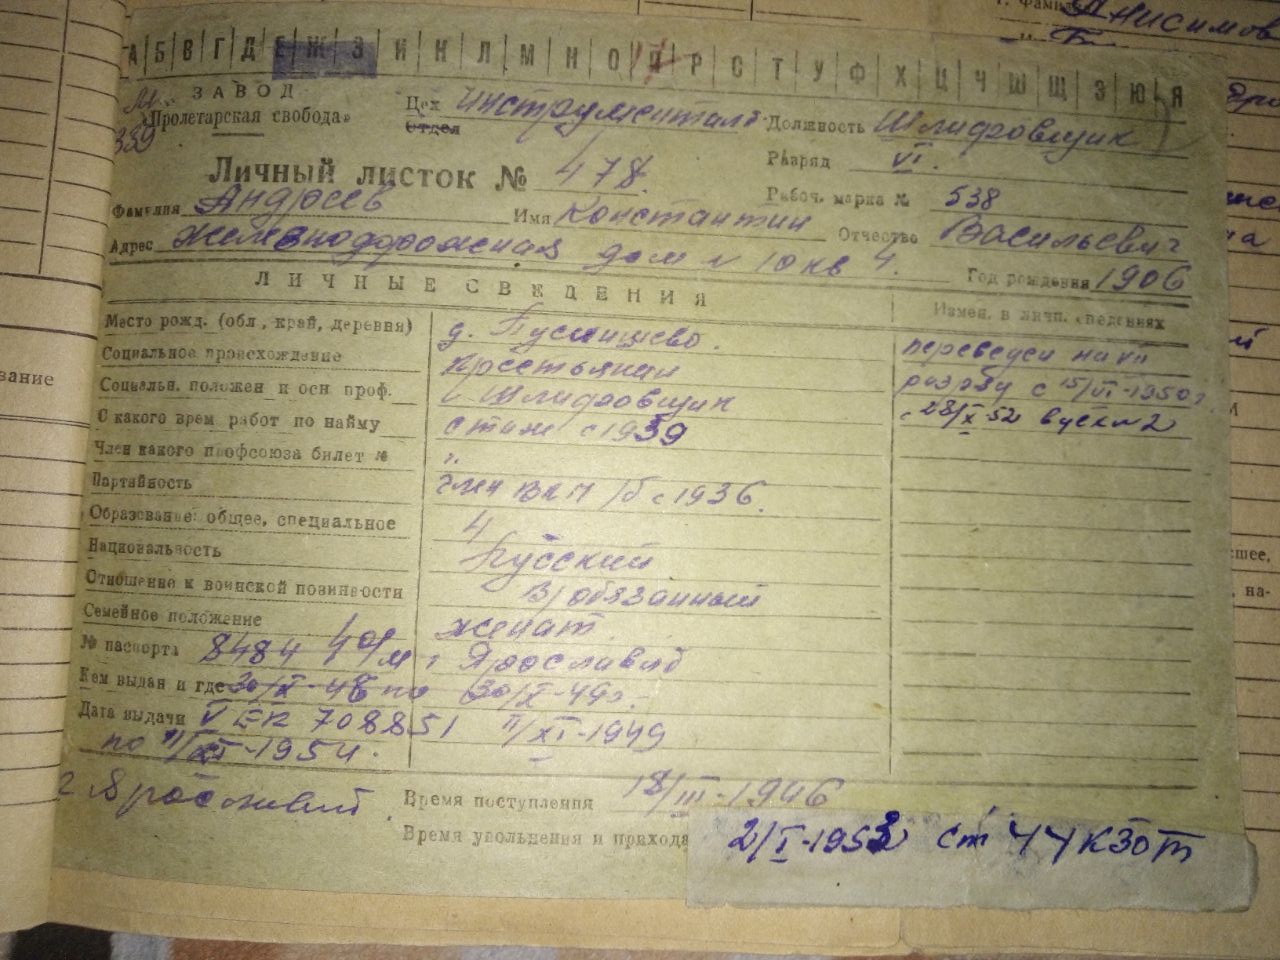 Анисимов
А Б В Г Д Е Ж З И К Л М Н О П Р С Т У Ф Х Ц Ч Ш Щ Э Ю Я
ЗАВОД
«Пролетарская свобода»
339
Цех Инструментальн
Отдел
Должность Шлифовщик
Разряд VI.
Личный листок № 478.
Рабоч. марка № 538
Фамилия Андреев Имя Константин Отчество Васильевич
Адрес Железнодорожная дом № 10 кв 4. Год рождения 1906
ЛИЧНЫЕ СВЕДЕНИЯ
Измен. в личн. сведениях
Место рожд. (обл., край, деревня) д.
Социальное происхождение крестьянин
Социальн. положен и осн проф. Шлифовщик
С какого врем работ по найму стаж с 1939
Член какого профсоюза билет №
Партийность член ВКП/б с 1936.
Образование: общее, специальное 4
Национальность Русский
Отношение к воинской повинности В/обязанный
Семейное положение женат.
№ паспорта 8484 г Ярославль
Кем выдан и где 30/X-46 по 30/X-49г.
Дата выдачи 708851 11/XI-1949
по 11/XI-1954.
г Ярославль
переведен на VII
разряд с 15/VI-1950г.
с 28/X-52
Время поступления 18/III-1946
Время увольнения и прихода
2/I-1953 ст 44 КЗОТ